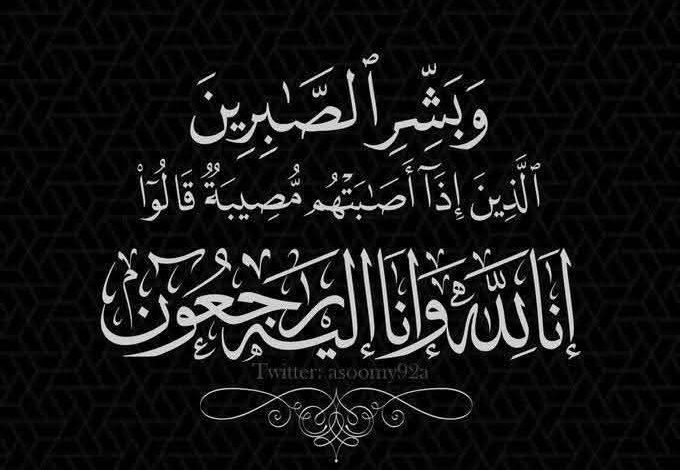 وَبَشِّرِ ٱلصَّٰبِرِينَ
ٱلَّذِينَ إِذَآ أَصَٰبَتْهُم مُّصِيبَةٌ قَالُوٓا۟
إنا لله وإنا إليه راجعون
Twitter: asoomy92a